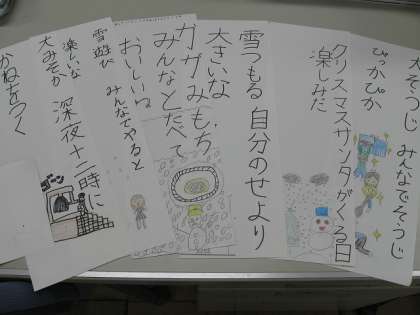 大そうじ みんなでそうじ
ぴっかぴか
クリスマスサンタがくる日
楽しみだ
雪つもる 自分のせより
大きいな
カガみもち
みんなとたべて
おいしいね
雪遊び みんなでやると
楽しいな
大みそか 深夜十二時に
かねをつく
ゴーン